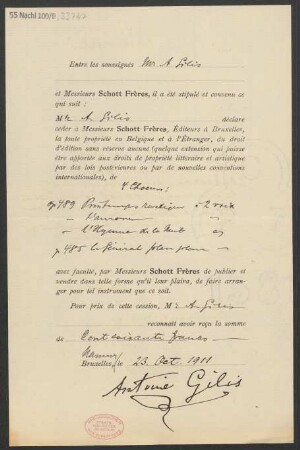 55 Nachl 100/B,
Entre les soussignés Mr A Gilis
et Messieurs Schott Frères, il a été stipulé et convenu ce
qui suit :
Mr A. Gilis déclare
céder à Messieurs Schott Frères, Éditeurs à Bruxelles,
la toute propriété en Belgique et à l'Étranger, du droit
d'édition sans réserve aucune (quelque extension qui puisse
être apportée aux droits de propriété littéraire et artistique
par des lois postérieures ou par de nouvelles conventions
internationales), de
4 Choeurs :
489 Printemps rustique à 2 voix
L'aurore "
L'Hymne de la Nuit
485 le Général plan plan
avec faculté, par Messieurs Schott Frères de publier et
vendre dans telle forme qu'il leur plaira, de faire arran-
ger pour tel instrument que ce soit.
Pour prix de cette cession, Mr A. Gilis
reconnait avoir reçu la somme
de Cent soixante francs
Namur
Bruxelles, le 23. Oct. 1911
Antoine Gilis